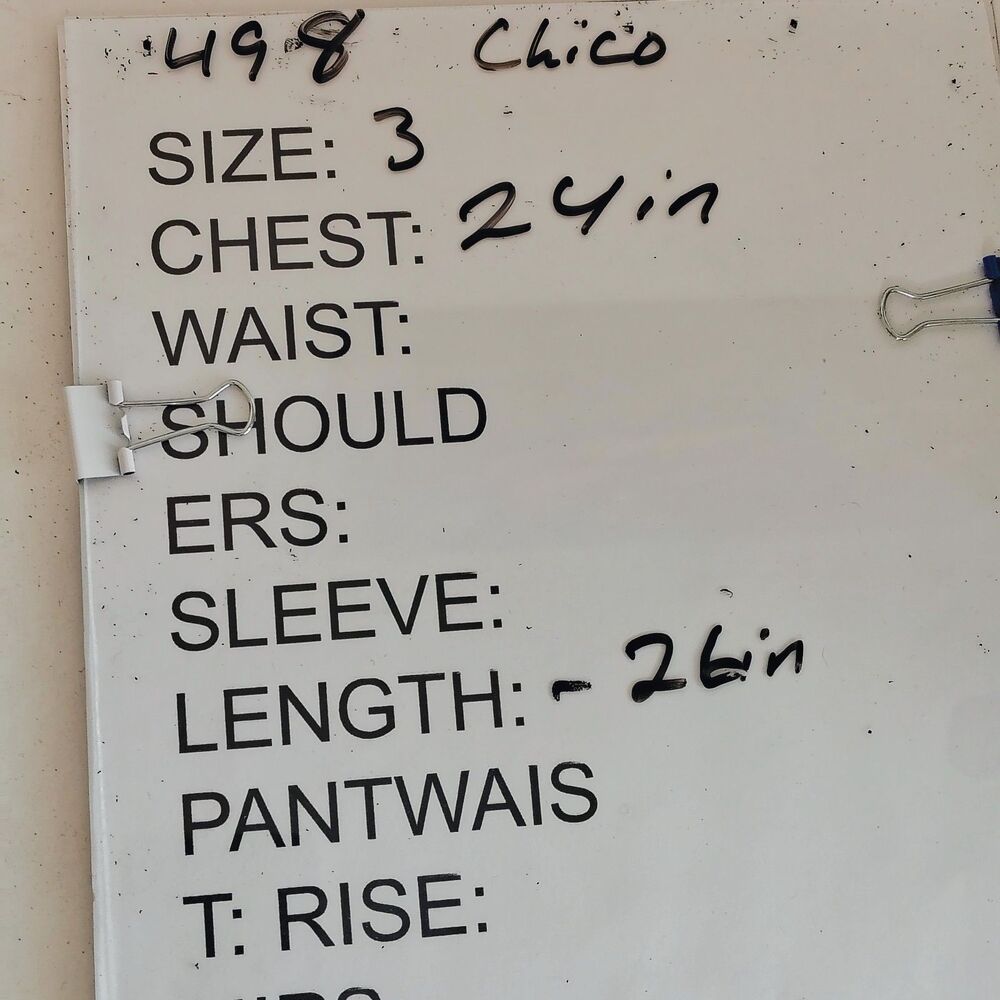 498 Chico
SIZE: 3
CHEST: 24in
WAIST:
SHOULD
ERS:
SLEEVE:
LENGTH: - 26in
PANTWAIS
T: RISE: